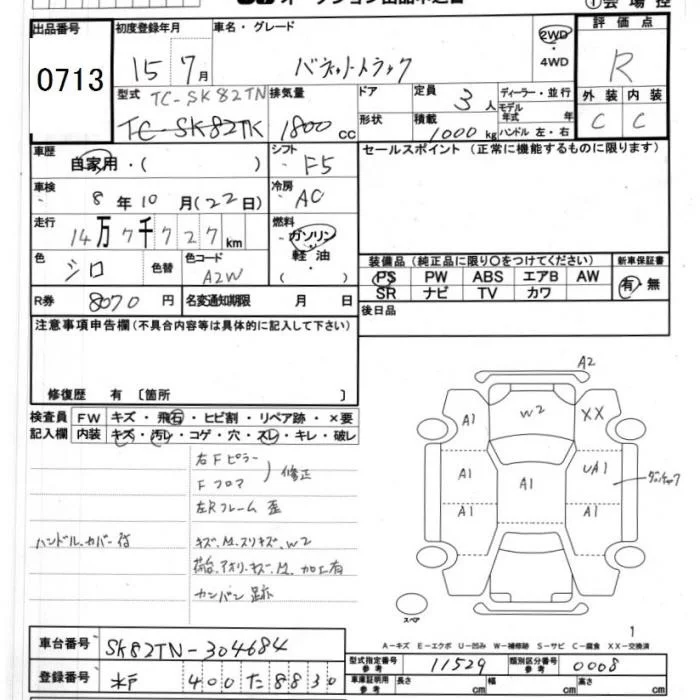 オークション出品申込書 ①会場控
出品番号 0713
初度登録年月 15年7月
車名・グレード バネットトラック
2WD・4WD
評価点 R
外装 C 内装 C
型式 TC-SK82TN
TC-SK82TK
排気量 1800cc
ドア
形状
定員 3人
積載 1000kg
ディーラー・並行
モデル年式 年
ハンドル 左・右
車歴 自家用・( )
シフト F5
セールスポイント (正常に機能するものに限ります)
車検 8年10月(22日)
冷房 AC
走行 14万7千727km
燃料 ガソリン・軽油・( )
色 シロ 色替
色コード A2W
装備品 (純正品に限り〇をつけてください) 新車保証書
PS PW ABS エアB AW 有・無
SR ナビ TV カワ
R券 8070円 名変通知期限 月 日
後日品
注意事項申告欄 (不具合内容等は具体的に記入して下さい)
修復歴 有 〔箇所 〕
検査員 FW キズ・飛石・ヒビ割・リペア跡・×要
記入欄 内装 キズ・汚レ・コゲ・穴・スレ・キレ・破レ
右Fピラー
Fフロア 修正
左Rフレーム 歪
ハンドル.カバー付 キズ.M.スリキズ.W2
荷台.アオリ.キズ.M.加工有
カンバン跡
A2
A1 W2 XX
A1 A1 UA1
A1 A1
スペア
1
A－キズ E－エクボ U－凹み W－補修跡 S－サビ C－腐食 XX－交換済
車台番号 SK82TN-304684
型式指定番号 参考 11529 類別区分番号 参考 0008
登録番号 水戸 400 た 8830
車庫証明用 参考 長さ cm 幅 cm 高さ cm